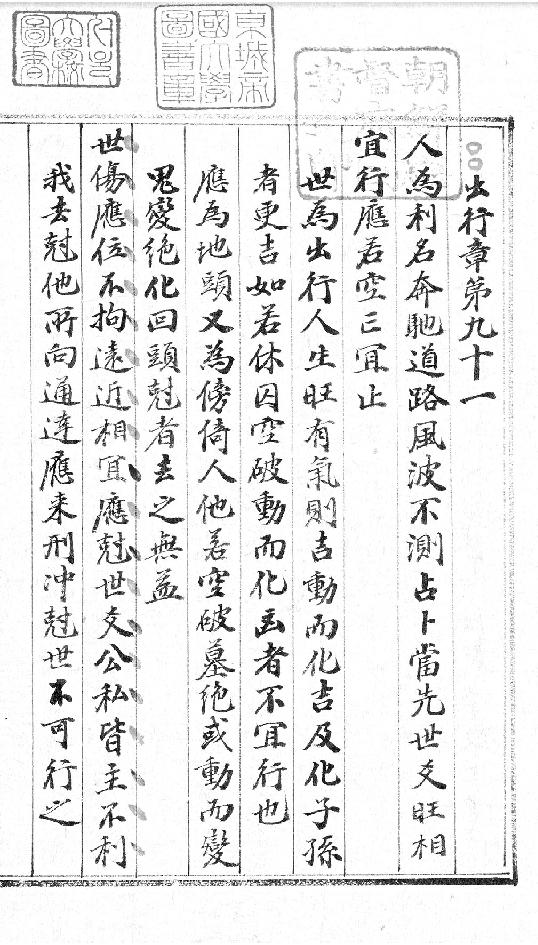 出行章第九十一
人為利名奔馳道路風波不測占卜當先世爻旺相
宜行應若空亡冝止
世為出行人生旺有氣則吉動而化吉及化子孫
者更吉如若休囚空破動而化凶者不冝行也
應為地頭又為傍倚人他若空破墓絶或動而變
鬼變絶化回頭尅者去之無益
世傷應位不拘遠近相冝應尅世爻公私皆主不利
我去尅他所向通達應来刑冲尅世不可行之